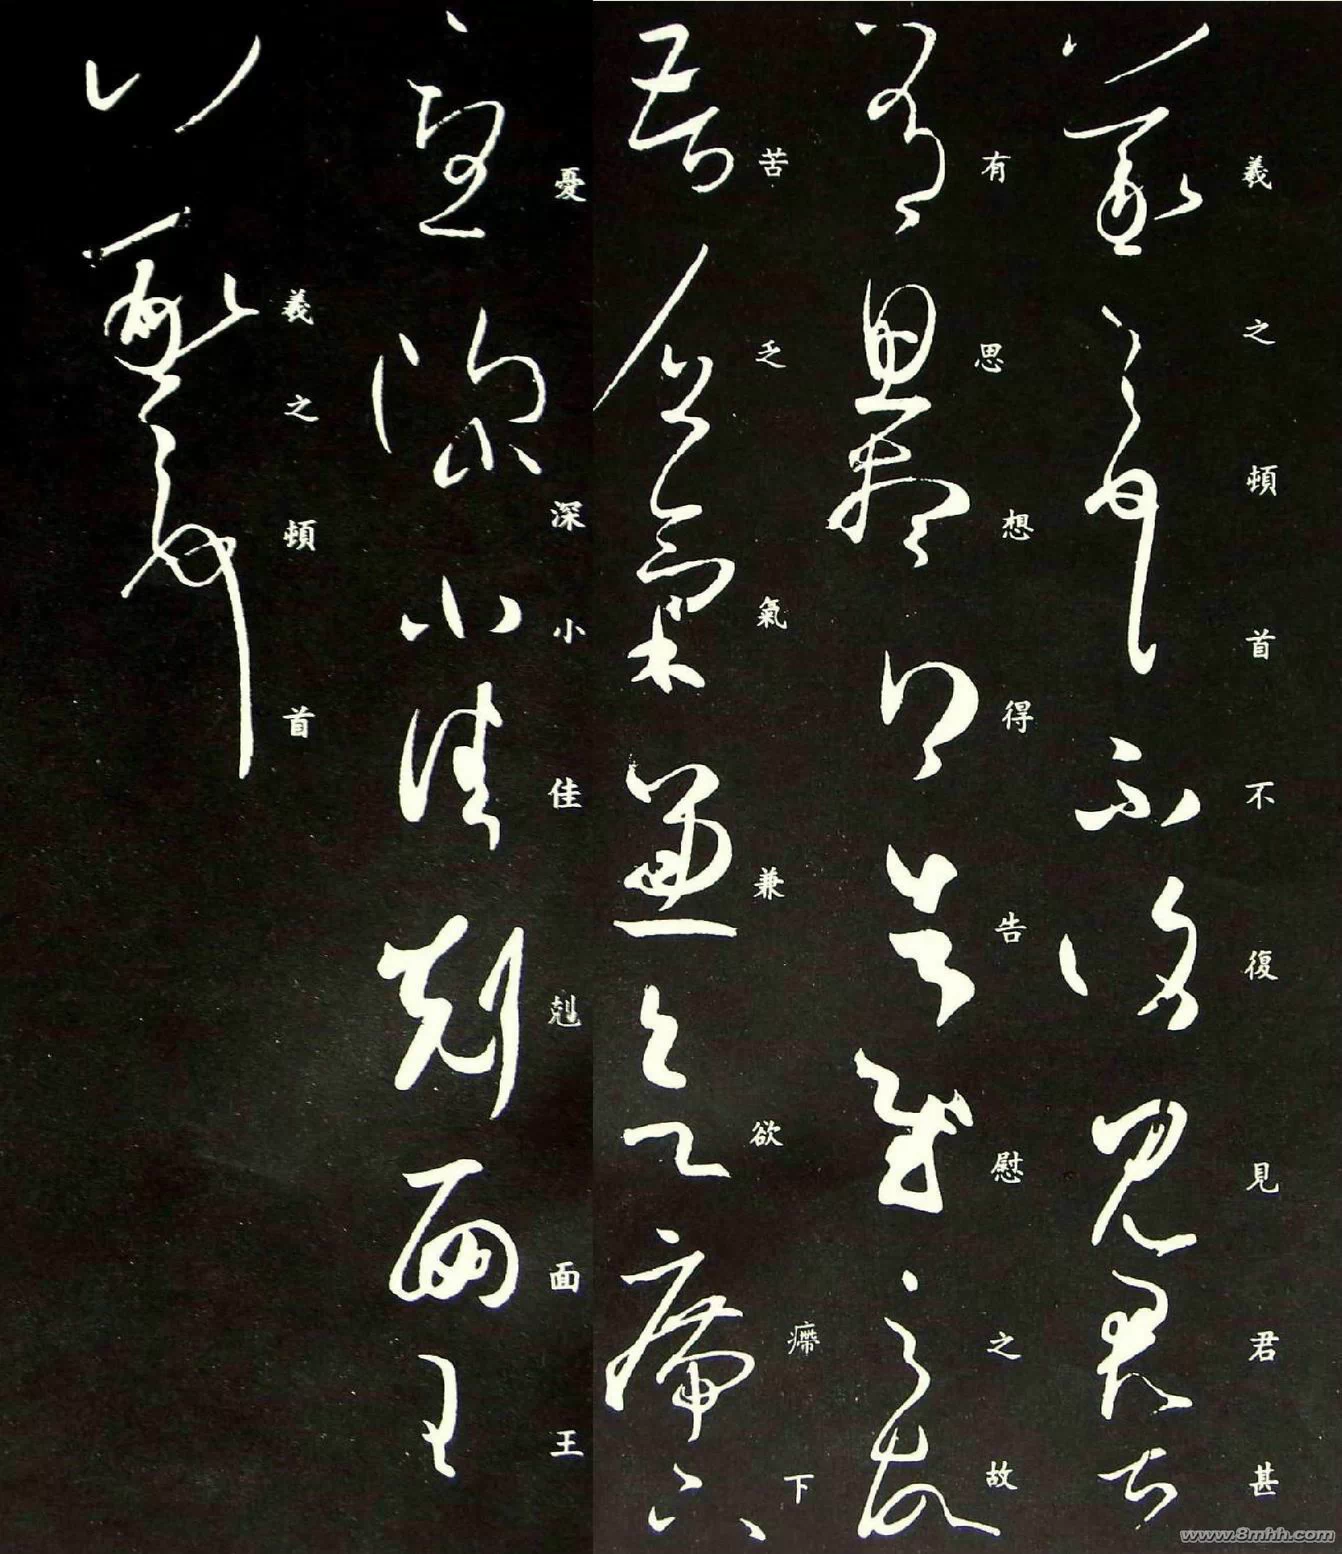 羲之頓首不復見君甚
有思想得告慰之故
苦乏氣兼欲㿃下
憂深小佳剋面王
羲之頓首
www.8mhh.com